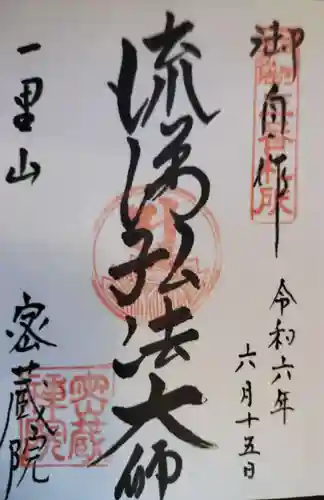 御自作
令和六年
六月十五日
流涕弘法大師
一里山
密蔵院
密蔵院